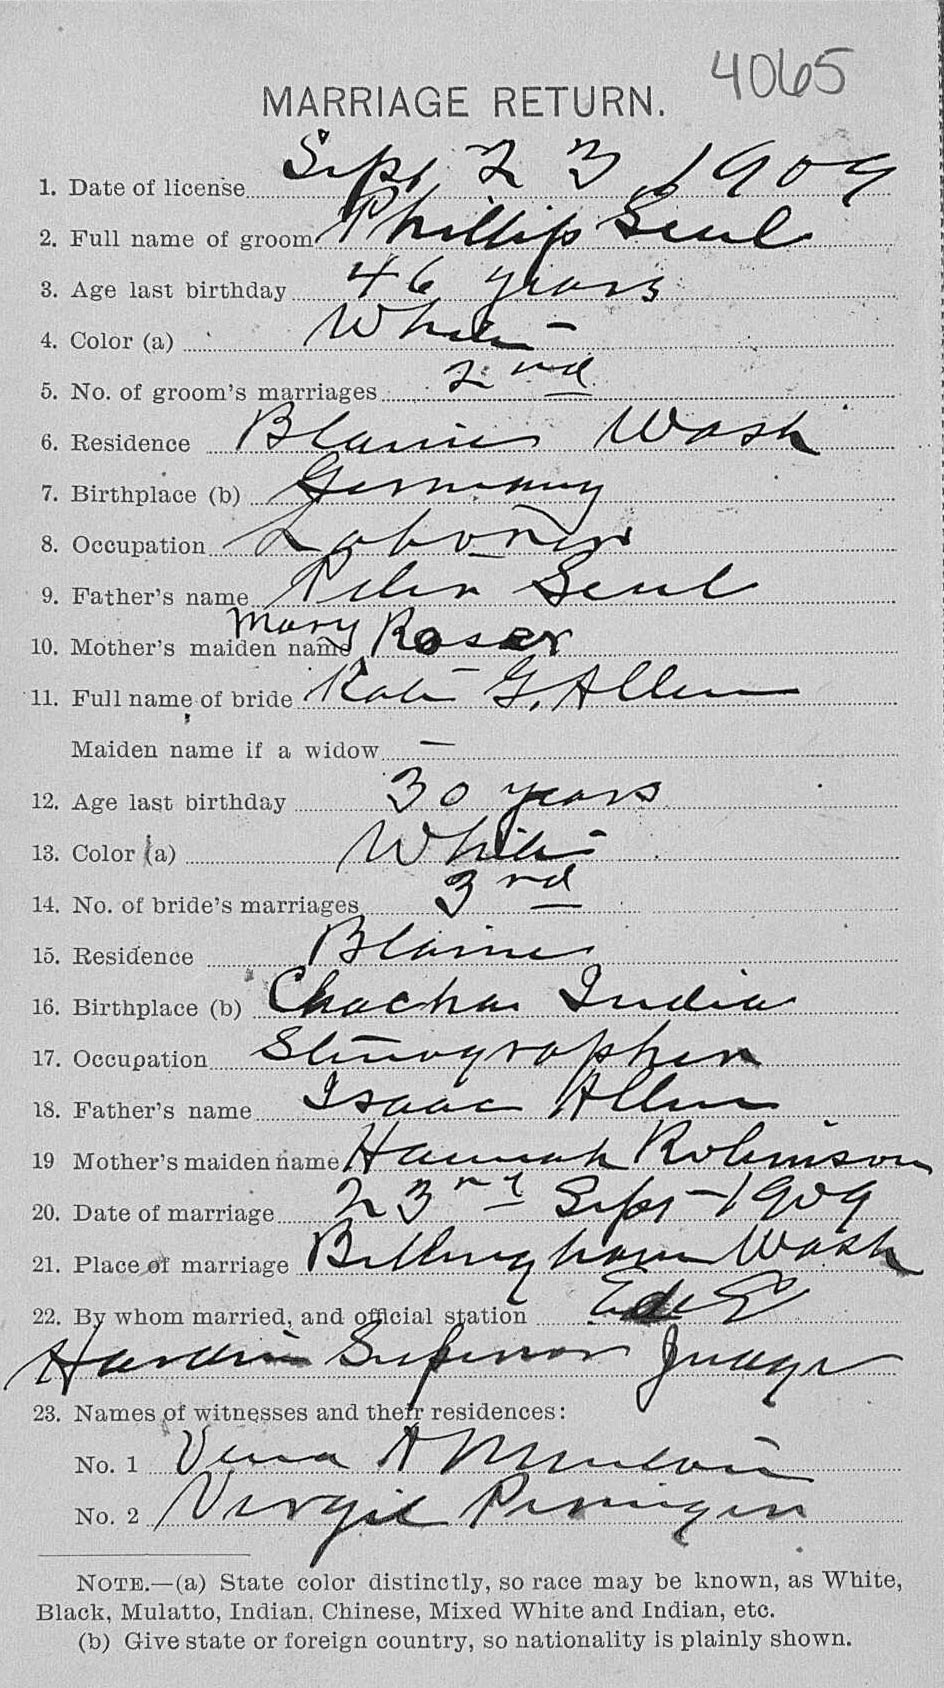 4065
MARRIAGE RETURN.
1. Date of license Sept 23, 1909
2. Full name of groom Phillip Seul
3. Age last birthday 46 years
4. Color (a) White
5. No. of groom's marriages 2nd
6. Residence Blaine Wash
7. Birthplace (b) Germany
8. Occupation Laborer
9. Father's name Peter Seul
10. Mother's maiden name Mary Roser
11. Full name of bride Kate G. Allen
Maiden name if a widow —
12. Age last birthday 30 years
13. Color (a) White
14. No. of bride's marriages 3rd
15. Residence Blaine
16. Birthplace (b) Chachar India
17. Occupation Stenographer
18. Father's name Isaac Allen
19 Mother's maiden name Hannah Robinson
20. Date of marriage 23rd Sept - 1909
21. Place of marriage Bellingham Wash
22. By whom married, and official station Ed E
Hardin Superior Judge
23. Names of witnesses and their residences:
No. 1 A
No. 2 Virgil Peringer
NOTE.—(a) State color distinctly, so race may be known, as White,
Black, Mulatto, Indian, Chinese, Mixed White and Indian, etc.
(b) Give state or foreign country, so nationality is plainly shown.